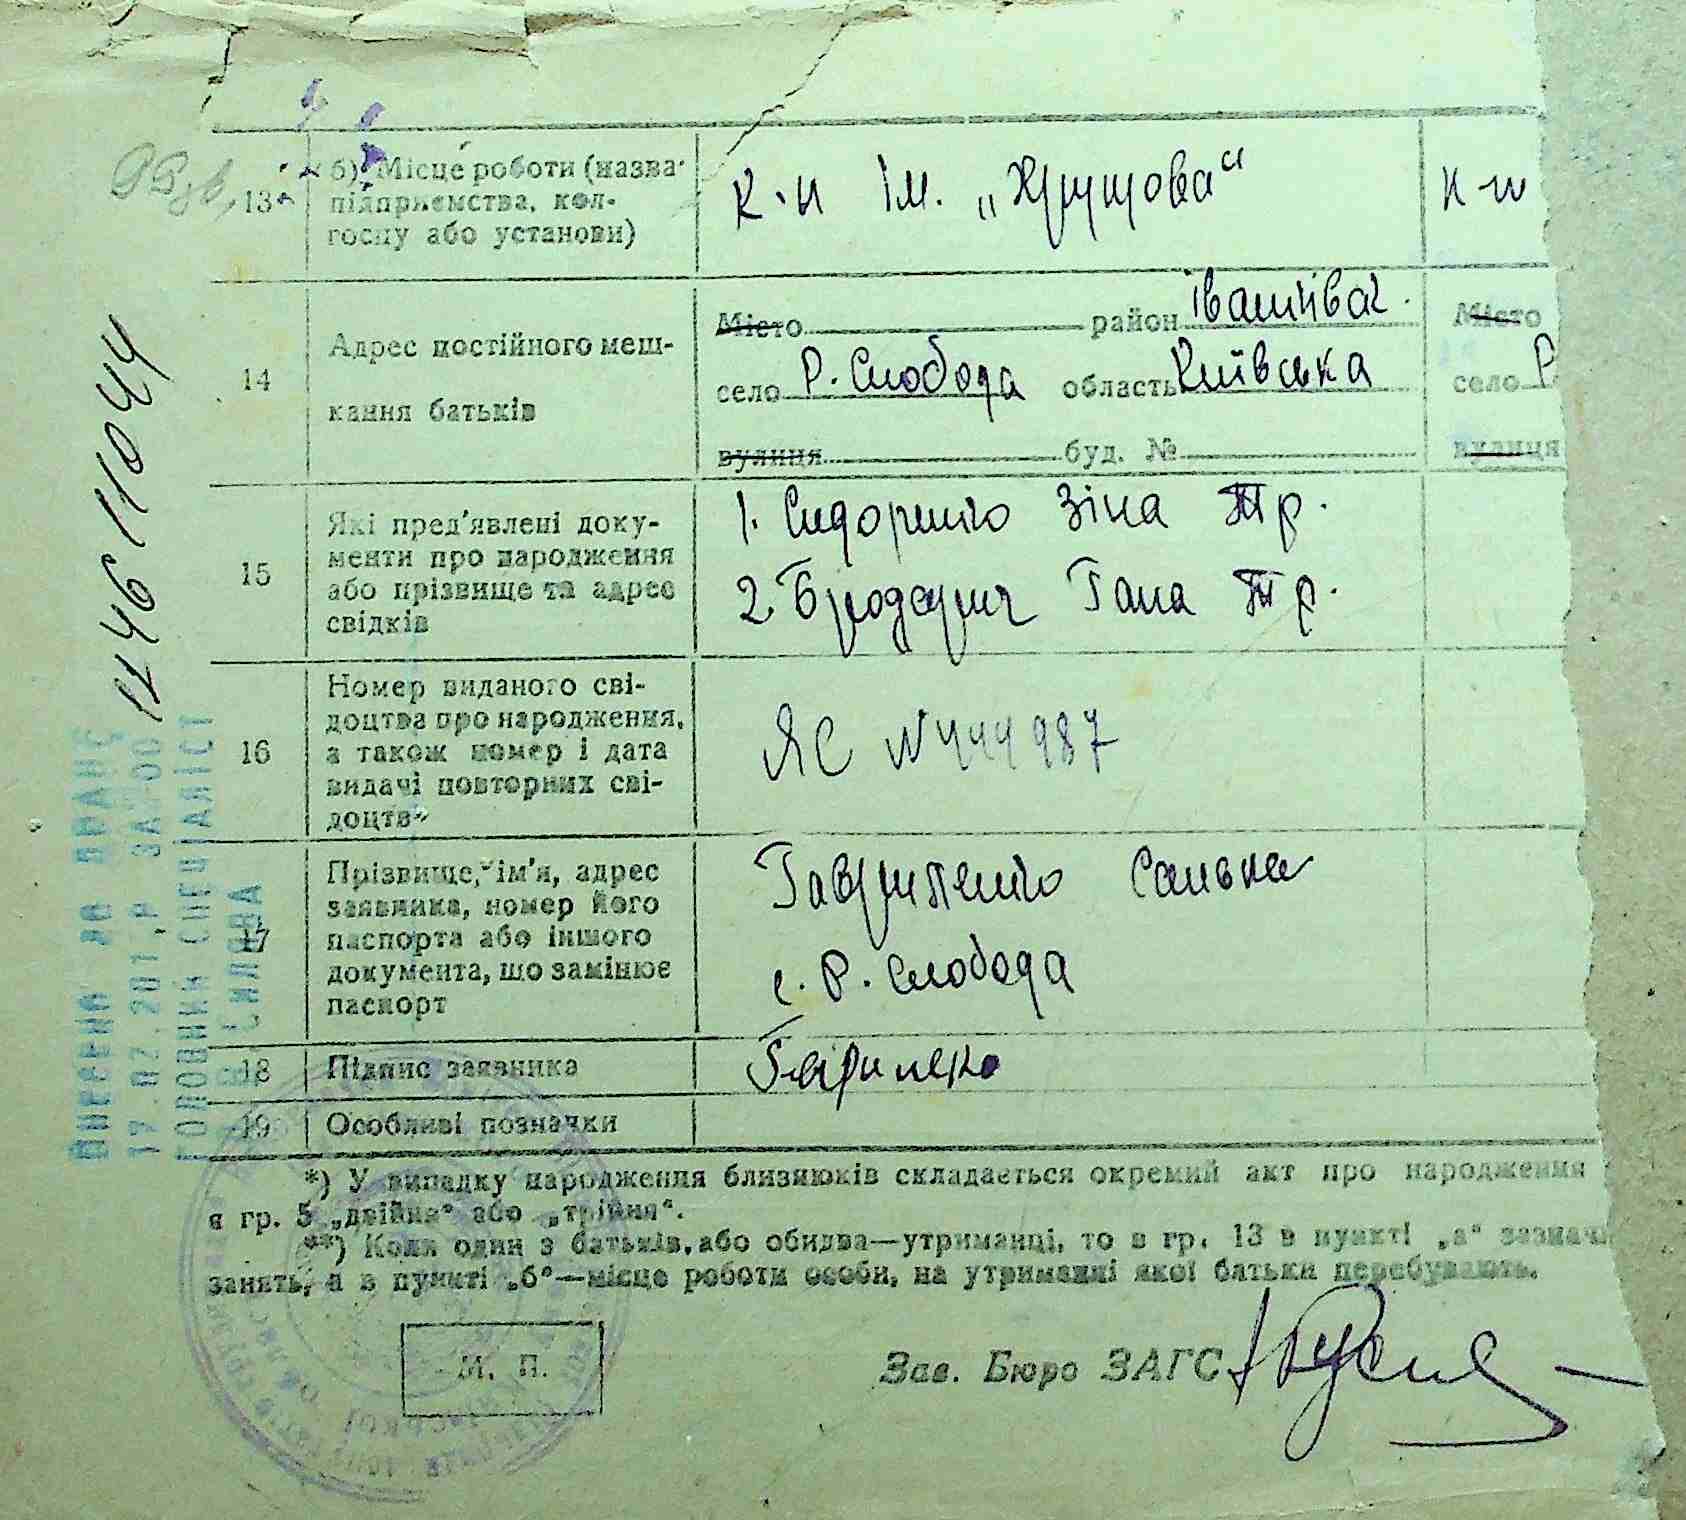 13
б) Місце роботи (назва
підприємства, кол-
госпу або установи)
к-п ім. „Хрущова“
к-п
14
Адрес постійного меш-
кання батьків
Місто район Іванків
село Р. Слобода область Київська
вулиця буд. №
Місто
село Р
вулиця
15
Які пред'явлені доку-
менти про народження
або прізвище та адрес
свідків
1. Сидоренко Зіна Тр.
2. Гана Тр.
16
Номер виданого сві-
доцтва про народження,
а також номер і дата
видачі повторних сві-
доцтв
ЯС № 444987
17
Прізвище, ім'я, адрес
заявника, номер його
паспорта або іншого
документа, що замінює
паспорт
Гавриленко Санька
с. Р. Слобода
18
Підпис заявника
19
Особливі позначки
*) У випадку народження близнюків складається окремий акт про народження
в гр. 5 „двійна“ або „трійня“.
**) Коли один з батьків, або обидва—утриманці, то в гр. 13 в пункті „а“ зазнач
занять, а в пункті „б“—місце роботи особи, на утриманні якої батьки перебувають.
М. П.
Зав. Бюро ЗАГС
ВНЕСЕНО ДО ДРАЦС
ГОЛОВНИЙ СПЕЦІАЛІСТ